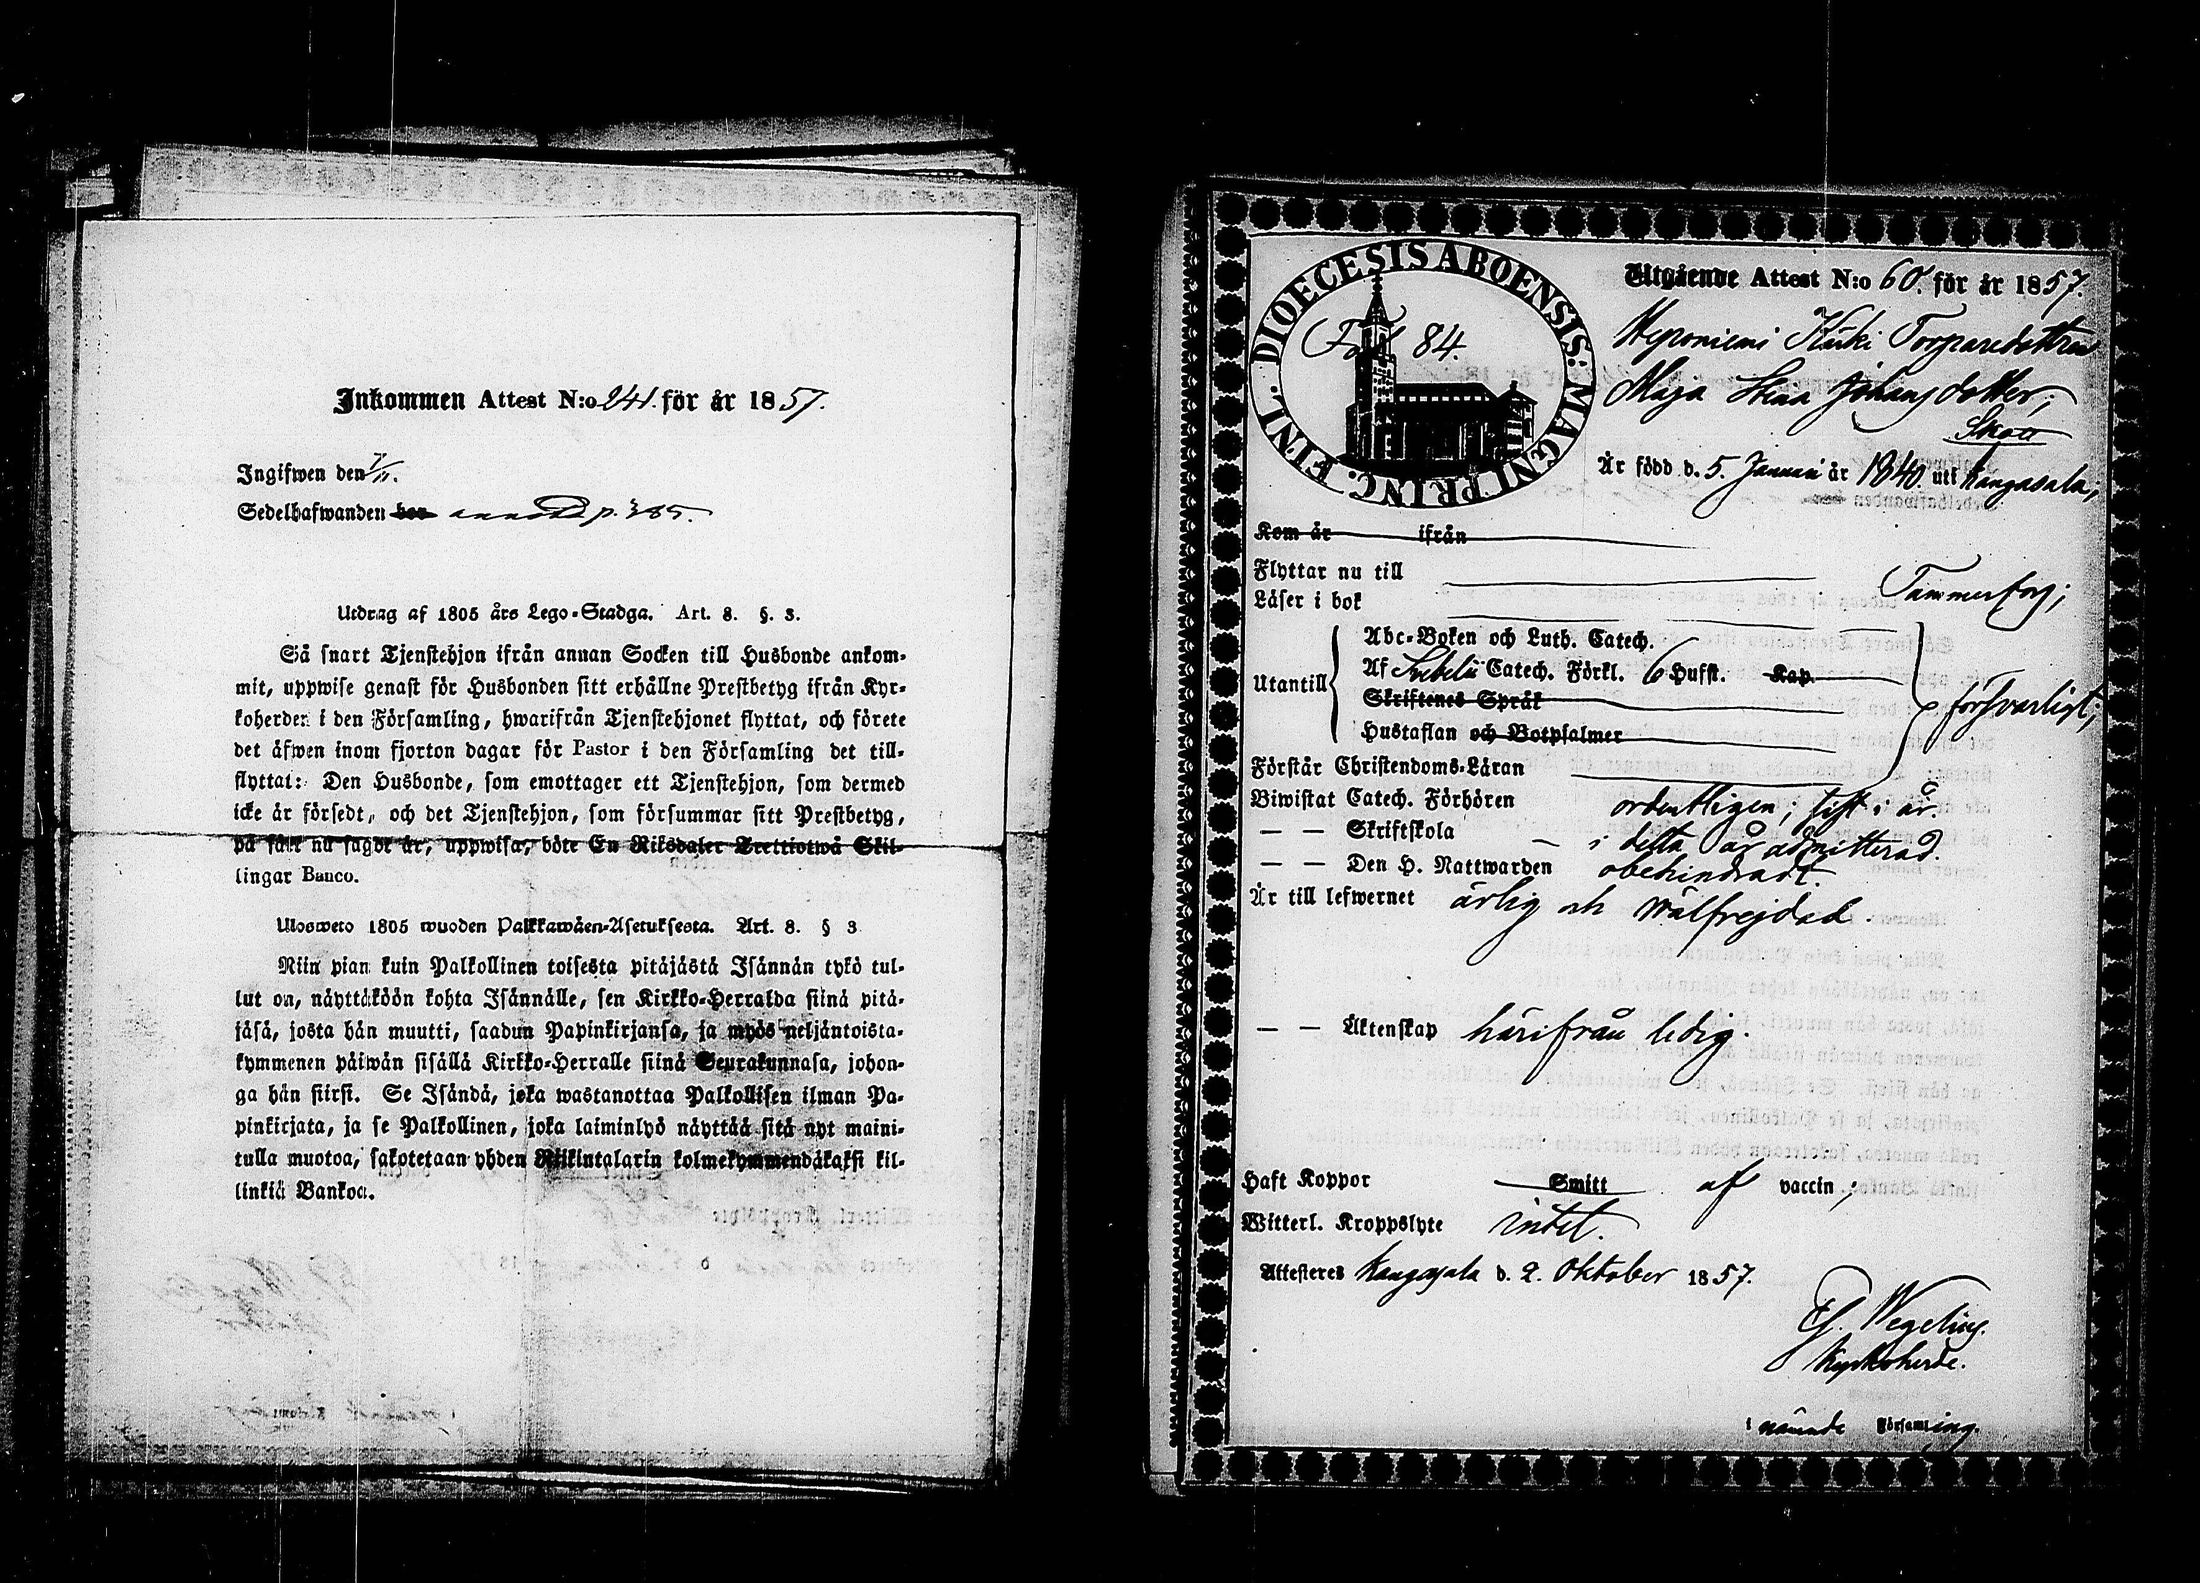 Inkommen Attest N:o 241. för år 1857.
Ingifwen den 7/11.
Sedelhafwanden bor annotd p. 385.
Utdrag af 1805 års Lego-Stadga. Art. 8. §. 3.
Så snart Tjenstehjon ifrån annan Socken till Husbonde ankom-
mit, uppwise genast för Husbonden sitt erhållne Prestbetyg ifrån Kyr-
koherden i den Församling, hwarifrån Tjenstehjonet flyttat, och förete
det äfwen inom fjorton dagar för Pastor i den Församling det till-
flyttat: Den Husbonde, som emottager ett Tjenstehjon, som dermed
icke är försedt, och det Tjenstehjon, som försummar sitt Prestbetyg,
på sätt nu sagdt är, uppwisa, böte En Riksdaler Trettiotwå Skil-
lingar Banco.
Ulosweto 1805 wuoden Palkkawäen-Asetuksesta. Art. 8. § 3
Niin pian kuin Palkollinen toisesta pitäjästä Isännän tykö tul-
lut on, näyttäköön kohta Isännälle, sen Kirkko-Herralda siinä pitä-
jäsä, josta hän muutti, saadun Papinkirjansa, ja myös neljäntoista-
kymmenen päiwän sisällä Kirkko-Herralle siinä Seurakunnasa, johon-
ga hän siirsi. Se Isändä, joka wastanottaa Palkollisen ilman Pa-
pinkirjata, ja se Palkollinen, joka laiminlyö näyttää sitä nyt maini-
tulla muotoa, sakotetaan yhden Riikintalarin kolmekymmendäkaksi kil-
linkiä Bankoa.
DIOECESIS ABOENSIS: MAGNI PRINC. FINL.
Fol 84.
Utgående Attest N:o 60. för år 1857.
Torparedottren
Maja Stina Johansdotter;
Är född d. 5. Januari år 1840. uti Kangasala;
Kom år ifrån
Flyttar nu till Tammerfors;
Läser i bok
Abc-Boken och Luth. Catech.
Utantill Af Svebelii Catech. Förkl. 6 Hufst. Kap.
Skriftenes Språk
försvarligt;
Hustaflan och Botpsalmer
Förstår Christendoms-Läran
Biwistat Catech. Förhören ordentligen; sist i år.
— — Skriftskola — i detta år admitterad.
— — Den H. Nattwarden obehindradt.
Är till lefwernet ärlig och wälfrejdad.
— — Äktenskap härifrån ledig.
Haft Koppor Smitt af vaccin;
Witterl. Kroppslyte intet.
Attesteres Kangasala d. 2. Oktober 1857.
Wegelius.
Kyrkoherde.
i nämnde Församling.